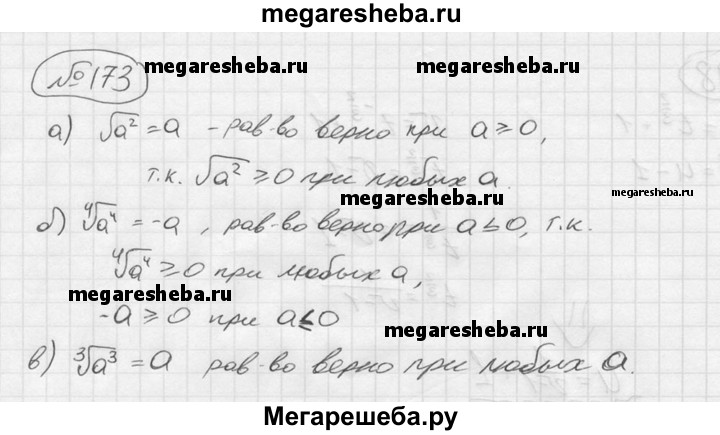 megaresheba.ru
№173 megaresheba.ru megaresheba.ru
а) √a² = a - рав-во верно при a ≥ 0,
т.к. √a² ≥ 0 при любых a.
megaresheba.ru megaresheba.ru
б) ⁴√a⁴ = -a, рав-во верно при a ≤ 0, т.к.
⁴√a⁴ ≥ 0 при любых a,
megaresheba.ru
-a ≥ 0 при a ≤ 0
megaresheba.ru
в) ³√a³ = a рав-во верно при любых a.
Мегарешеба.ру